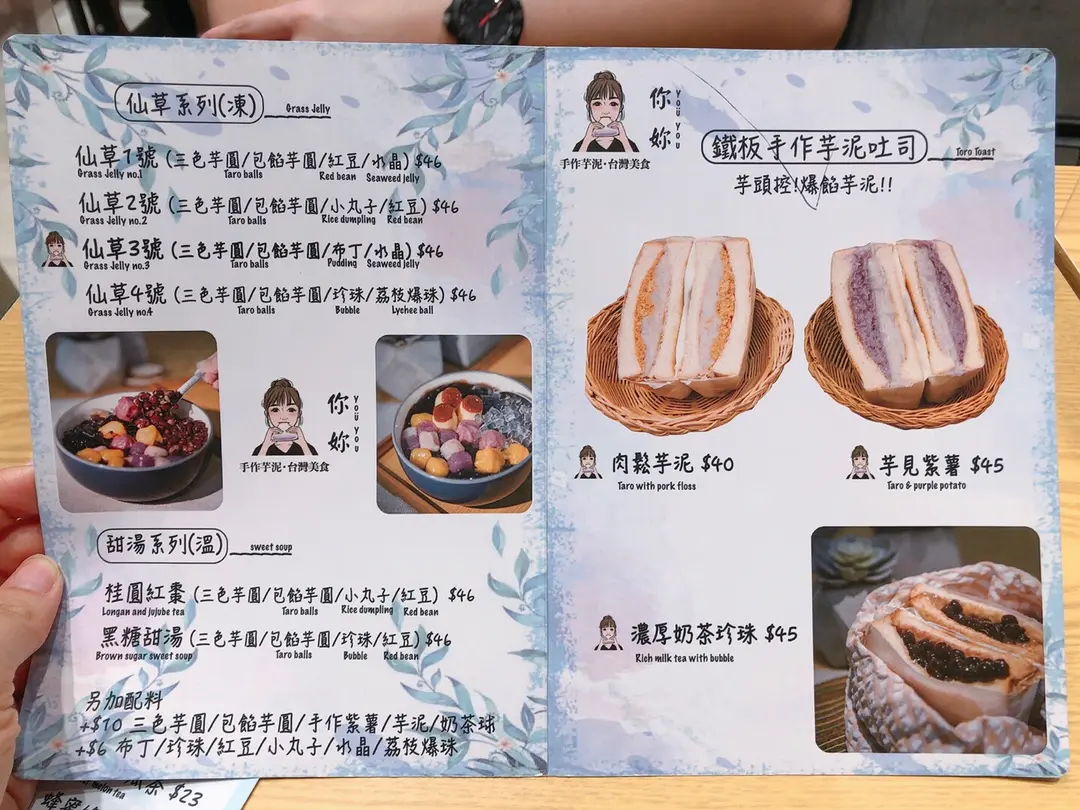 仙草系列(凍) Grass Jelly
仙草1號 (三色芋圓/包餡芋圓/紅豆/水晶) $46
Grass Jelly no.1 Taro balls Red bean Seaweed jelly
仙草2號 (三色芋圓/包餡芋圓/小丸子/紅豆) $46
Grass Jelly no.2 Taro balls Rice dumpling Red bean
仙草3號 (三色芋圓/包餡芋圓/布丁/水晶) $46
Grass Jelly no.3 Taro balls Pudding Seaweed jelly
仙草4號 (三色芋圓/包餡芋圓/珍珠/荔枝爆珠) $46
Grass Jelly no.4 Taro balls Bubble Lychee ball
你妳 YOU YOU
手作芋泥·台灣美食
甜湯系列(溫) sweet soup
桂圓紅棗 (三色芋圓/包餡芋圓/小丸子/紅豆) $46
Longan and jujube tea Taro balls Rice dumpling Red bean
黑糖甜湯 (三色芋圓/包餡芋圓/珍珠/紅豆) $46
Brown sugar sweet soup Taro balls Bubble Red bean
另加配料
+$10 三色芋圓/包餡芋圓/手作紫薯/芋泥/奶茶球
+$6 布丁/珍珠/紅豆/小丸子/水晶/荔枝爆珠
你妳 YOU YOU
手作芋泥·台灣美食
鐵板手作芋泥吐司 Toro Toast
芋頭控!爆餡芋泥!!
肉鬆芋泥 $40
Taro with pork floss
芋見紫薯 $45
Taro & purple potato
濃厚奶茶珍珠 $45
Rich milk tea with bubble
$23